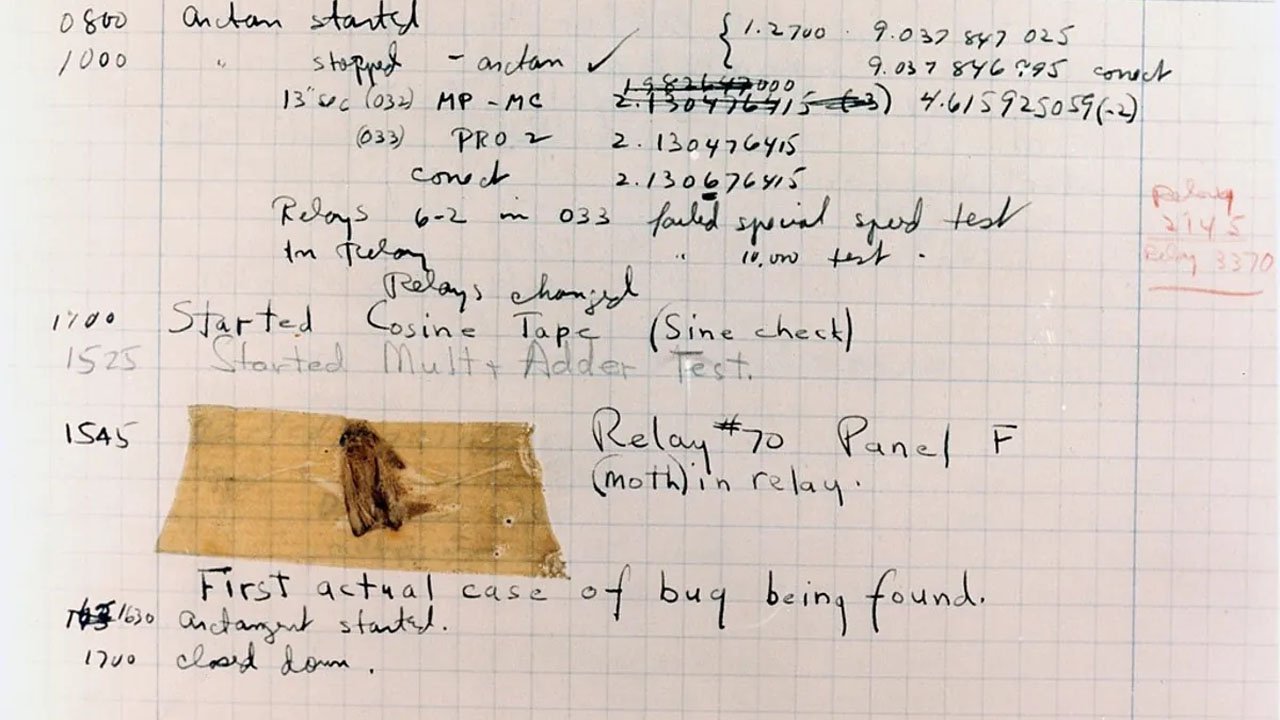 0800 arctan started { 1.2700 9.037 847 025
1000 " stopped - arctan ✓ 9.037 846 995 correct
13" sec (032) MP - MC 2.130476415 (-3) 4.615925059(-2)
(033) PRO 2 2.130476415
correct 2.130676415
Relays 6-2 in 033 failed special speed test
In Relay " 10,000 test .
Relay
2145
Relay 3370
Relays changed
Started Cosine Tape (Sine check)
1525 Started Mult + Adder Test.
1545 Relay #70 Panel F
(moth) in relay.
First actual case of bug being found.
1630 arctangent started.
1700 closed down.